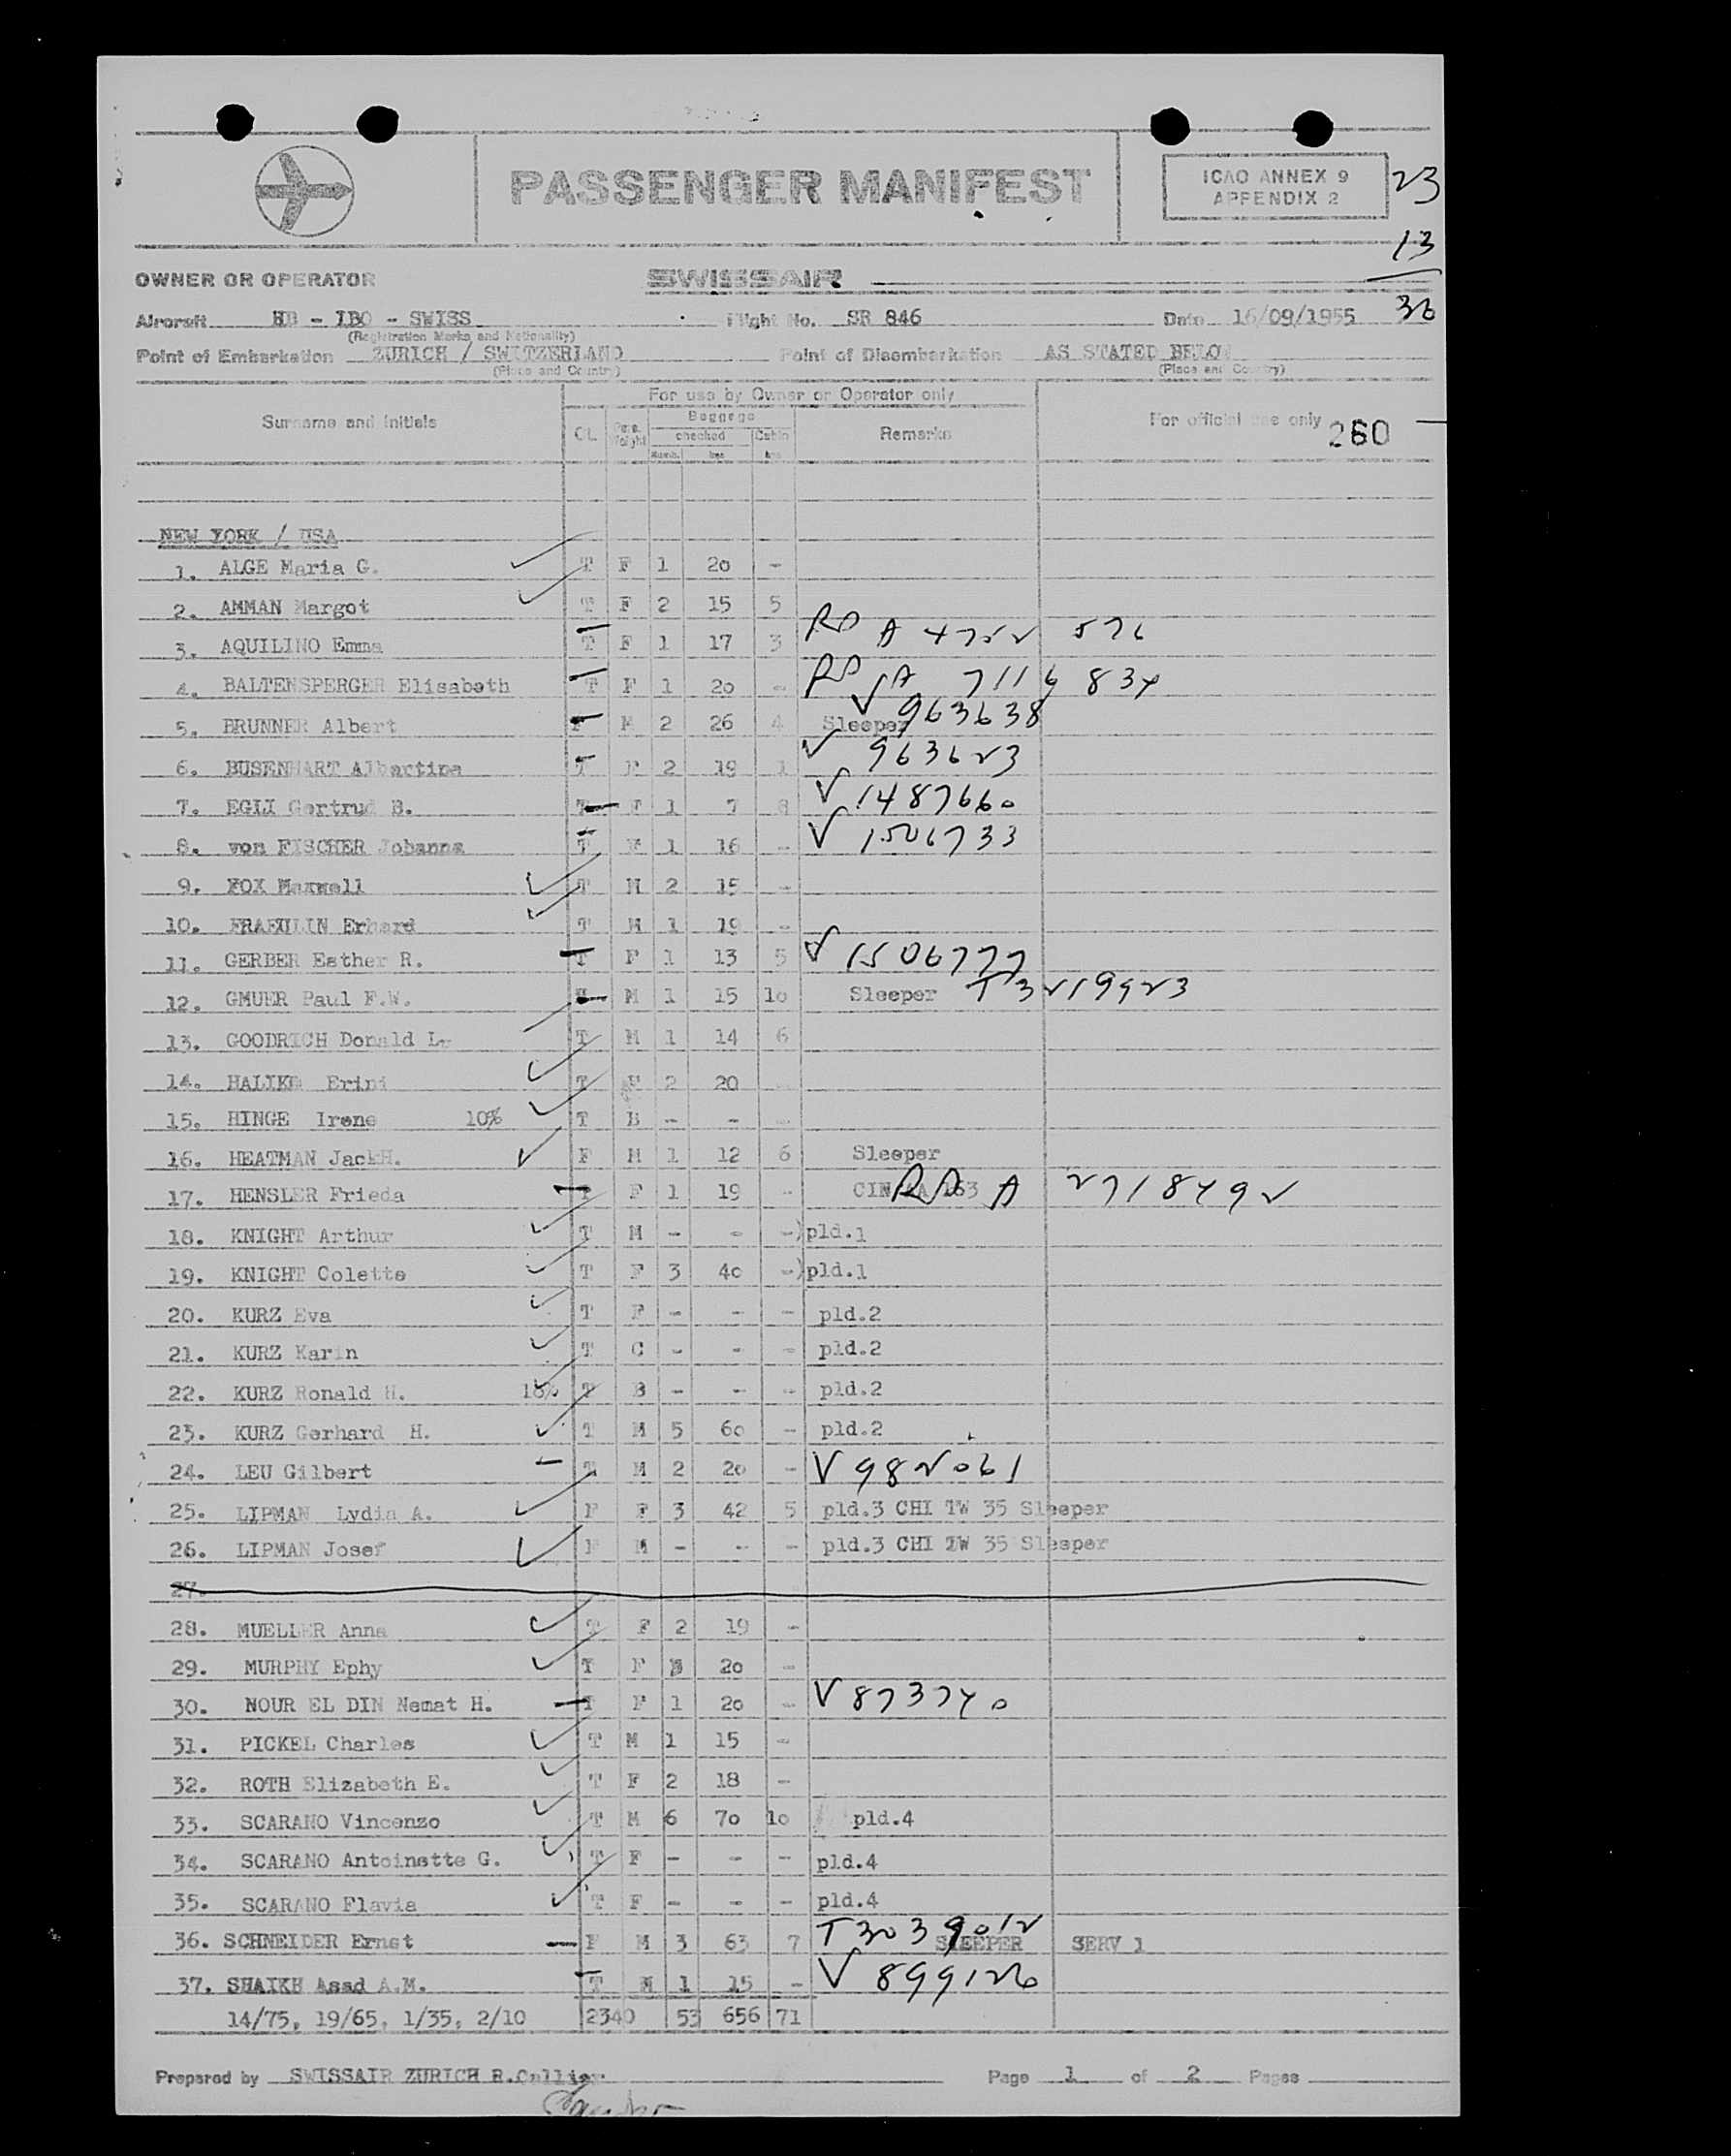 PASSENGER MANIFEST
ICAO ANNEX 9
APPENDIX 2
23
13
36
OWNER OR OPERATOR SWISSAIR
Aircraft HB - IBO - SWISS Flight No. SR 846 Date 16/09/1955
(Registration Marks and Nationality)
Point of Embarkation ZURICH / SWITZERLAND Point of Disembarkation AS STATED BELOW
(Place and Country) (Place and Country)
For use by Owner or Operator only
Surname and initials CL Pers. Weight Baggage checked Numb. kgs Cabin kgs Remarks For official use only 260
NEW YORK / USA
1. ALGE Maria G. T F 1 20 -
2. AMMAN Margot T F 2 15 5
3. AQUILINO Emma T F 1 17 3 RP A 4752 576
4. BALTENSPERGER Elisabeth T F 1 20 - RP A 7116 834
5. BRUNNER Albert F M 2 26 4 Sleeper V 963638
6. BUSENHART Albertine T F 2 19 1 V 963623
7. EGLI Gertrud B. T F 1 7 8 V 1487660
8. von FISCHER Johanna T F 1 16 - V 1506733
9. FOX Maxwell T M 2 15 -
10. Erhard T M 1 19 -
11. GERBER Esther R. T F 1 13 5 V 1506777
12. GMUER Paul F.W. M 1 15 10 Sleeper T 3219923
13. GOODRICH Donald L. T M 1 14 6
14. HALIKE Erini T F 2 20
15. HINGE Irene 10% T B - - -
16. HEATMAN JackH. F M 1 12 6 Sleeper
17. HENSLER Frieda T F 1 19 - CIN AA 163 RP A 2718492
18. KNIGHT Arthur T M - - -)pld.1
19. KNIGHT Colette T F 3 40 -)pld.1
20. KURZ Eva T F - - - pld.2
21. KURZ Karin T C - - - pld.2
22. KURZ Ronald H. 10% T B - - - pld.2
23. KURZ Gerhard H. T M 5 60 - pld.2
24. LEU Gilbert T M 2 20 - V 982061
25. LIPMAN Lydia A. F F 3 42 5 pld.3 CHI TW 35 Sleeper
26. LIPMAN Josef F M - - - pld.3 CHI TW 35 Sleeper
27.
28. MUELLER Anna T F 2 19 -
29. MURPHY Ephy T F 20 -
30. NOUR EL DIN Nemat H. T F 1 20 - V 873740
31. PICKEL Charles T M 1 15 -
32. ROTH Elizabeth E. T F 2 18 -
33. SCARANO Vincenzo T M 6 70 10 pld.4
34. SCARANO Antoinette G. T F - - - pld.4
35. SCARANO Flavia T F - - - pld.4
36. SCHNEIDER Ernst F M 3 63 7 T 3039012 SLEEPER SERV 1
37. SHAIKH Asad A.M. T M 1 15 - V 899126
14/75, 19/65, 1/35, 2/10 2340 53 656 71
Prepared by SWISSAIR ZURICH Page 1 of 2 Pages